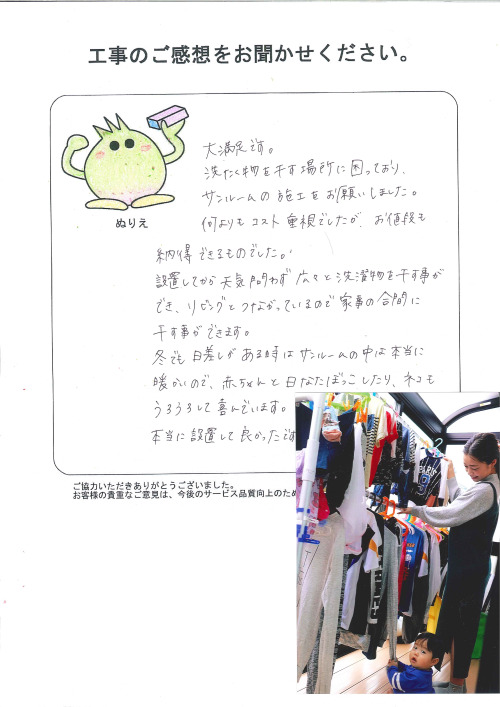 工事のご感想をお聞かせください。
ぬりえ
大満足です。
洗たく物を干す場所に困っており、
サンルームの施工をお願いしました。
何よりもコスト重視でしたが、お値段も
納得できるものでした。
設置してから天気問わず広々と洗濯物を干す事が
でき、リビングとつながっているので家事の合間に
干す事ができます。
冬でも日差しがある時はサンルームの中は本当に
暖かいので、赤ちゃんと日なたぼっこしたり、ネコも
うろうろして喜んでいます。
本当に設置して良かったです
ご協力いただきありがとうございました。
お客様の貴重なご意見は、今後のサービス品質向上のため